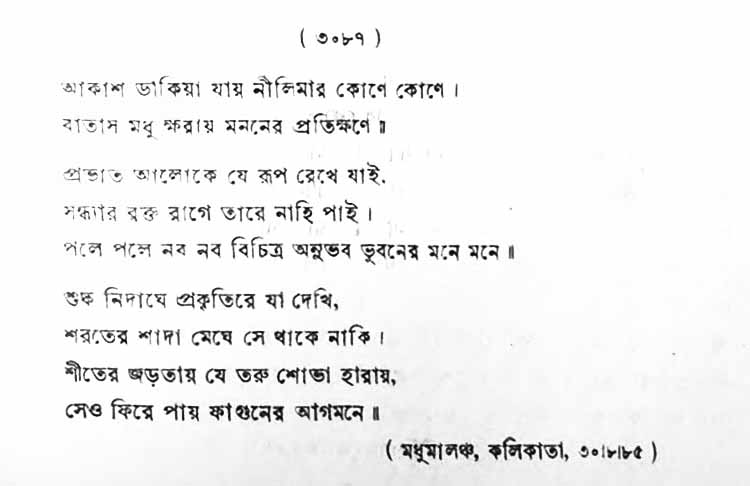 ( ৩০৮৭ )
আকাশ ডাকিয়া যায় নীলিমার কোণে কোণে ।
বাতাস মধু ক্ষরায় মননের প্রতিক্ষণে ॥
প্রভাত আলোকে যে রূপ রেখে যাই,
সন্ধ্যার রক্ত রাগে তারে নাহি পাই ।
পলে পলে নব নব বিচিত্র অনুভব ভুবনের মনে মনে ॥
শুষ্ক নিদাঘে প্রকৃতিরে যা দেখি,
শরতের শাদা মেঘে সে থাকে নাকি ।
শীতের জড়তায় যে তরু শোভা হারায়,
সেও ফিরে পায় ফাগুনের আগমনে ॥
( মধুমালঞ্চ, কলিকাতা, ৩০।৮।৮৫ )